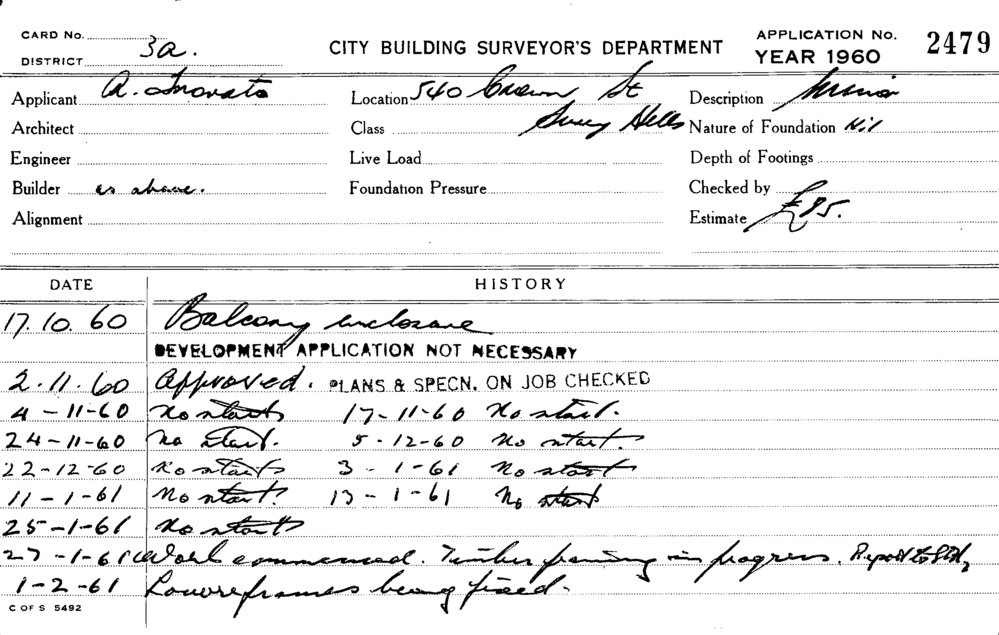 CARD No.
DISTRICT 3a.
CITY BUILDING SURVEYOR'S DEPARTMENT
APPLICATION No. 2479
YEAR 1960
Applicant A. Location 540 Crown St Description Minor
Architect Class Surry Hills Nature of Foundation Nil
Engineer Live Load Depth of Footings
Builder as above. Foundation Pressure Checked by
Alignment Estimate £95.
DATE HISTORY
17. 10. 60 Balcony enclosure
DEVELOPMENT APPLICATION NOT NECESSARY
2. 11. 60 Approved. PLANS & SPECN. ON JOB CHECKED
4 - 11-60 No start 17-11-60 No start.
24-11-60 No start. 5-12-60 No start.
22-12-60 No start 3-1-61 No start
11-1-61 No start. 13-1-61 No start
25-1-61 No start
27-1-61 Work commenced. Timber framing in progress. Report to
1-2-61 Louvre frames being fixed.
C OF S 5492